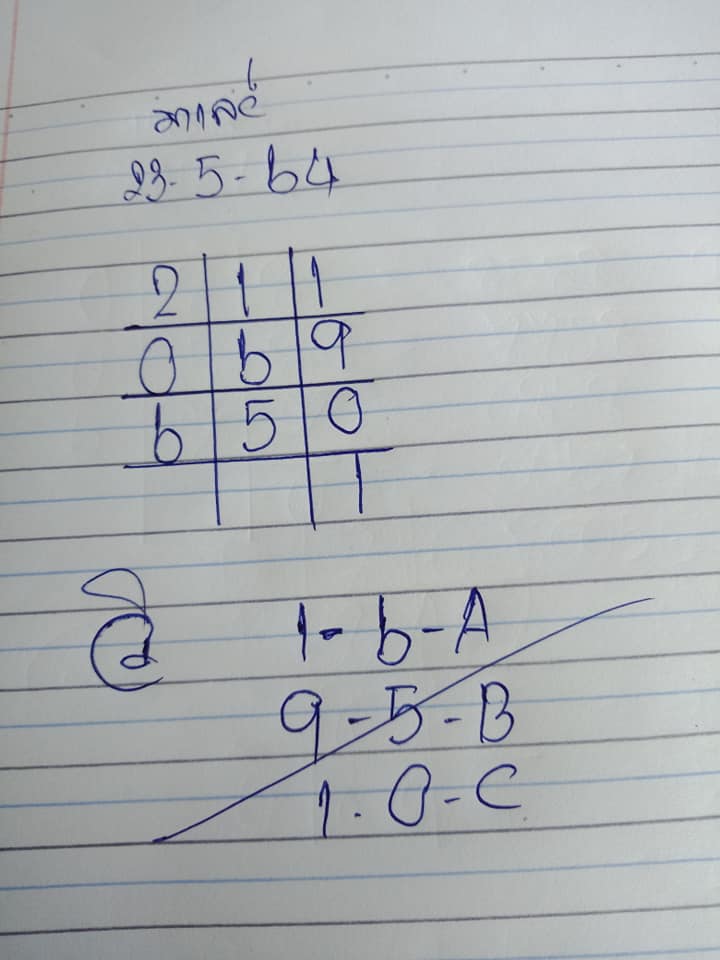 23-5-64
2 1 1
0 6 9
6 5 0
1
1-6-A
9-5-B
1-0-C